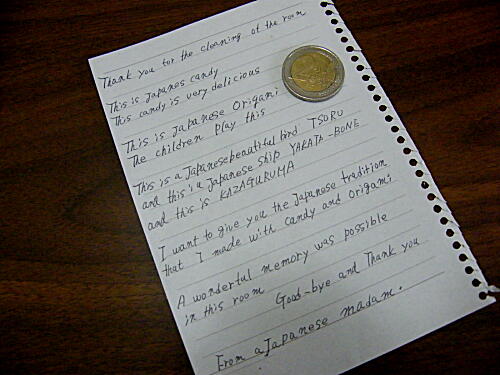 Thank you for the cleaning of the room
This is Japanes candy
This candy is very delicious
This is Japanese Origami
The children play this
This is a Japanese beautiful bird TSURU
and this is a Japanese ship YAKATA-BONE
and this is KAZAGURUMA
I want to give you the Japanese tradition
that I made with candy and origami
A wonderful memory was possible
in this room
Good-bye and Thank you
From a Japanese madam.